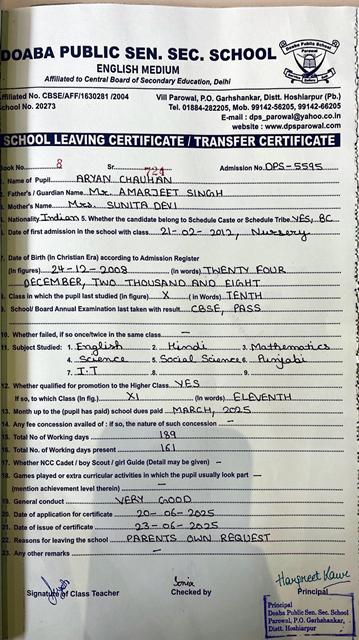 DOABA PUBLIC SEN. SEC. SCHOOL
ENGLISH MEDIUM
Affiliated to Central Board of Secondary Education, Delhi
Doaba Public School
ffiliated No. CBSE/AFF/1630281 /2004 Vill Parowal, P.O. Garhshankar, Distt. Hoshiarpur (Pb.)
chool No. 20273 Tel. 01884-282205, Mob. 99142-56205, 99142-66205
E-mail : dps_parowal@yahoo.co.in
website : www.dpsparowal.com
SCHOOL LEAVING CERTIFICATE / TRANSFER CERTIFICATE
Book No. 8 Sr. 724 Admission No. DPS-5595
1. Name of Pupil ARYAN CHAUHAN
2. Father's / Guardian Name Mr. AMARJEET SINGH
3. Mother's Name Mrs. SUNITA DEVI
4. Nationality Indian 5. Whether the candidate belong to Schedule Caste or Schedule Tribe YES, BC
6. Date of first admission in the school with class 21-02-2012, Nursery
7. Date of Birth (In Christian Era) according to Admission Register
(In figures) 24-12-2008 (In words) TWENTY FOUR
DECEMBER, TWO THOUSAND AND EIGHT
8. Class in which the pupil last studied (in figure) X ( in Words) TENTH
9. School/ Board Annual Examination last taken with result CBSE, PASS
10. Whether failed, if so once/twice in the same class —
11. Subject Studied: 1. English 2. Hindi 3. Mathematics
4. Science 5. Social Science 6. Punjabi
7. I.T 8. 9.
12. Whether qualified for promotion to the Higher Class YES
If so, to which Class (In fig.) XI (In words) ELEVENTH
13. Month up to the (pupil has paid) school dues paid MARCH, 2025
14. Any fee concession availed of : if so, the nature of such concession —
15. Total No of Working days 189
16. Total No. of Working days present 161
17. Whether NCC Cadet / boy Scout / girl Guide (Detail may be given) —
18. Games played or extra curricular activities in which the pupil usually took part —
(mention achievement level therein) —
19. General conduct VERY GOOD
20. Date of application for certificate 20-06-2025
21. Date of issue of certificate 23-06-2025
22. Reasons for leaving the school PARENTS OWN REQUEST
23. Any other remarks —
Sonia Harpreet Kaur
Signature of Class Teacher Checked by Principal
Principal
Doaba Public Sen. Sec. School
Parowal, P.O. Garhshankar,
Distt. Hoshiarpur